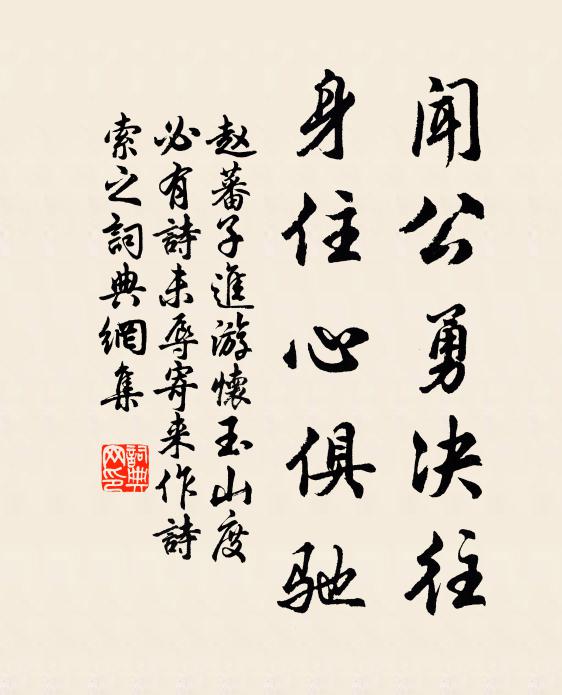 闻公勇决往
身住心俱驰
赵蕃子進游懷玉山度
必有詩未辱寄来作詩
索之詞典網集
詞典网印